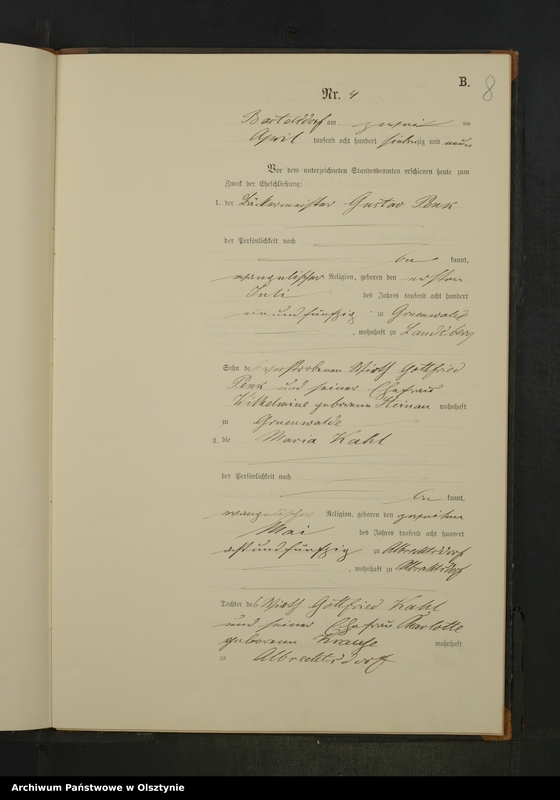 B.
8
Nr. 4
Bartelsdorf am zwei ten
April tausend acht hundert siebenzig und neun
Vor dem unterzeichneten Standesbeamten erschienen heute zum
Zweck der Eheschließung:
1. der Bäckermeister Gustav Penk
der Persönlichkeit nach
be kannt,
evangelischer Religion, geboren den ersten
Juli des Jahres tausend acht hundert
ein und fünfzig zu Gruenwalde
, wohnhaft zu Landsberg
Sohn des verstorbenen Wirth Gottfried
Penk und seiner Ehefrau
Wilhelmine geborene Heinau wohnhaft
zu Gruenwalde
2. die Maria Kahl
der Persönlichkeit nach
be kannt,
evangelischer Religion, geboren den zweiten
Mai des Jahres tausend acht hundert
acht und fünfzig zu Albrechtsdorf
, wohnhaft zu Albrechtsdorf
Tochter des Wirth Gottfried Kahl
und seiner Ehefrau Charlotte
geborene Krause wohnhaft
zu Albrechtsdorf
Archiwum Państwowe w Olsztynie